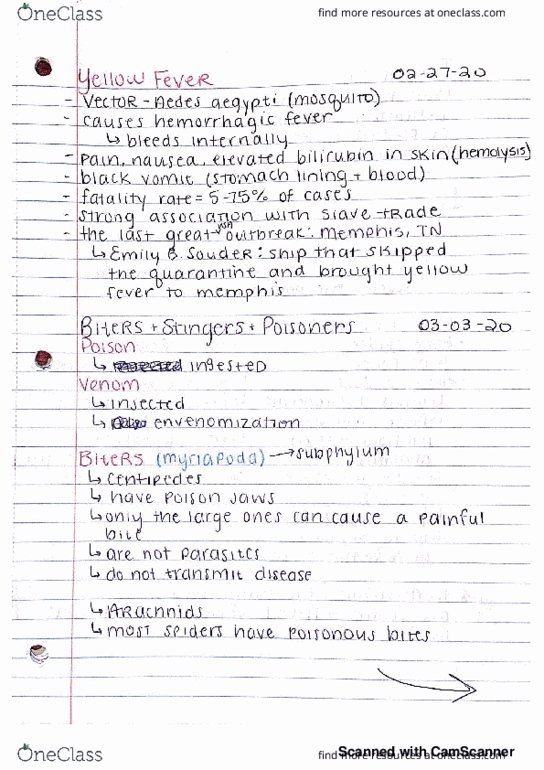 OneClass
find more resources at oneclass.com
Yellow Fever 02-27-20
- Vector - Aedes aegypti (mosquito)
- causes hemorrhagic fever
↳ bleeds internally
- pain, nausea, elevated bilirubin in skin (hemolysis)
- black vomit (stomach lining + blood)
- fatality rate = 5-75% of cases
- strong association with slave trade
- the last great USA outbreak: Memphis, TN
↳ Emily B. Souder: ship that skipped
the quarantine and brought yellow
fever to memphis
Biters + Stingers + Poisoners 03-03-20
Poison
↳ ingested
Venom
↳ injected
↳ envenomization
Biters (myriapoda) → subphylum
↳ centipedes
↳ have poison jaws
↳ only the large ones can cause a painful
bite
↳ are not parasites
↳ do not transmit disease
↳ Arachnids
↳ most spiders have poisonous bites
OneClass
find more resources at oneclass.com
Scanned with CamScanner